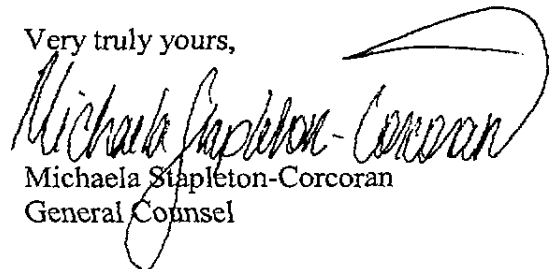 Very truly yours,
Michaela Stapleton-Corcoran
Michaela Stapleton-Corcoran
General Counsel